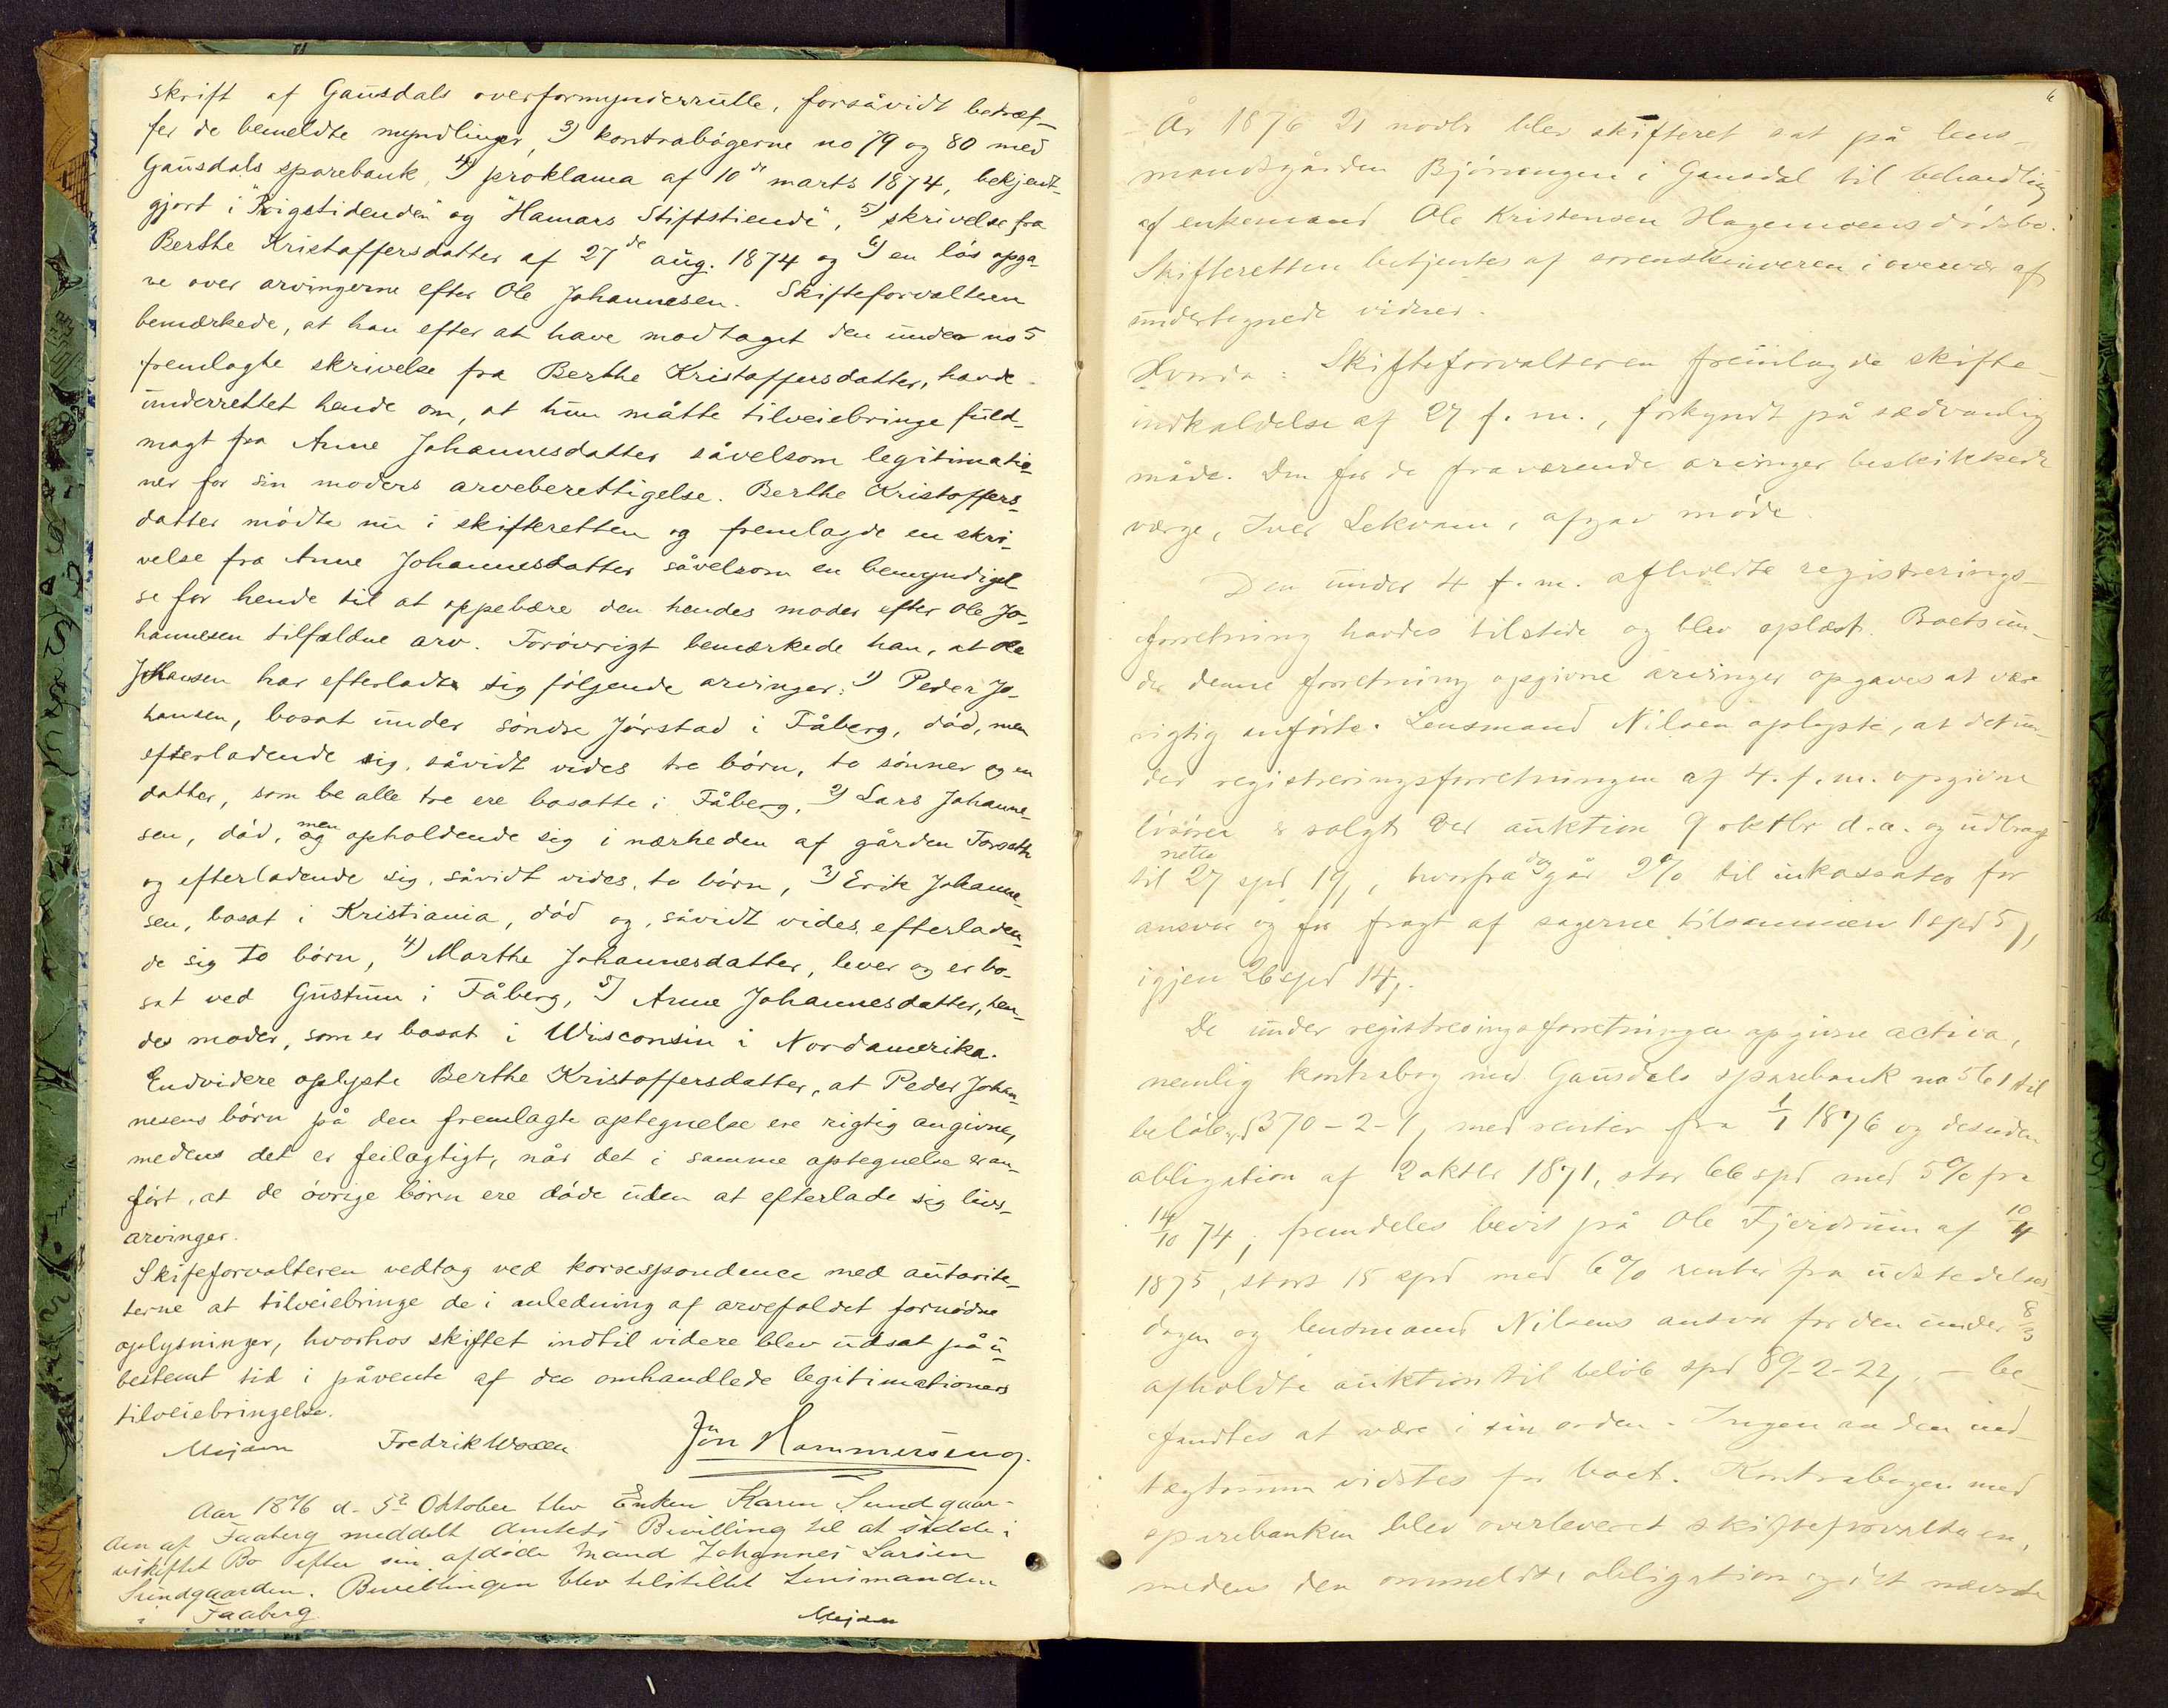 skrift af Gausdals overformynderrulle, forsåvidt betræf-
fer de bemeldte myndlinger, 3) kontrabøgerne no 79 og 80 med
Gausdals sparebank, 4) proklama af 10de marts 1874, bekjendt-
gjort i "Rigstidenden" og "Hamars Stiftstiende", 5) skrivelse fra
Berthe Kristoffersdatter af 27de aug. 1874 og 6) en løs opga-
ve over arvingerne efter Ole Johannesen. Skifteforvalteren
bemærkede, at han efter at have modtaget den under no 5
fremlagte skrivelse fra Berthe Kristoffersdatter, havde
underrettet hende om, at hun måtte tilveiebringe fuld-
magt fra Anne Johannesdatter såvelsom legitimatio-
ner for sin moders arveberettigelse. Berthe Kristoffers-
datter mødte nu i skifteretten og fremlagde en skri-
velse fra Anne Johannesdatter såvelsom en bemyndigel-
se for hende til at oppebære den hendes moder efter Ole Jo-
hannesen tilfaldne arv. Forøvrigt bemærkede han, at Ole
Johansen har efterladt sig følgende arvinger: 1) Peder Jo-
hansen, bosat under søndre Jørstad i Fåberg, død, men
efterladende sig, såvidt vides tre børn, to sønner og en
datter, som be alle tre ere bosatte i Fåberg, 2) Lars Johanne-
sen, død, men og opholdende sig i nærheden af gården Forsæth
og efterladende sig, såvidt vides, to børn, 3) Erik Johanne-
sen, bosat i Kristiania, død og, såvidt vides, efterladen-
de sig to børn, 4) Marthe Johannesdatter, lever og er bo-
sat ved Gustum i Fåberg, 5) Anne Johannesdatter, hen-
des moder, som er bosat i Wisconsin i Nordamerika.
Endvidere oplyste Berthe Kristoffersdatter, at Peder Johan-
nesens børn på den fremlagte optegnelse ere rigtig angivne,
medens det er feilagtigt, når det i samme optegnelse er an-
ført, at de øvrige børn ere døde uden at efterlade sig livs-
arvinger.
Skifteforvalteren vedtog ved korrespondence med autorite-
terne at tilveiebringe de i anledning af arvefaldet fornødne
oplysninger, hvorhos skiftet indtil videre blev udsat på u-
bestemt tid i påvente af de omhandlede legitimationers
tilveiebringelse.
Mejdam Fredrik Jon Hammerseng.
Aar 1876 d. 5te Oktober blev Enken Karen Sundgaar-
den af Faaberg meddelt Amtets Bevilling til at sidde i
uskiftet Bo efter sin afdøde Mand Johannes Larsen
Sundgaarden. Bevillingen blev tilstillet Lensmanden
i Faaberg.
Mejdam
6
År 1876 21 novbr blev skifteret sat på lens-
mandsgården Bjørnengen i Gausdal til behandling
af enkemand Ole Kristensen Hagemoens dødsbo.
Skifteretten betjentes af sorenskriveren i overvær af
undertegnede vidner.
Hvorda: Skifteforvalteren fremlagde skifte-
indkaldelse af 27 f. m., forkyndt på sædvanlig
måde. Den for de fraværende arvinger beskikkede
værge, Iver Lekvam, afgav møde.
Den under 4 f. m. afholdte registrerings-
forretning havdes tilstede og blev oplæst. Boets un-
der denne forretning opgivne arvinger opgaves at være
rigtig anførte. Lensmand Nilsen oplyste, at det un-
der registreringsforretningen af 4. f. m. opgivne
løsøre er solgt ved auktion 9 oktbr d. a. og udbragt
netto
til 27 spd 19, hvorfra dog går 2% til inkassator for
ansvar og for fragt af sagerne tilsammen 1 spd 5,
igjen 26 spd 14.
De under registreringsforretningen opgivne activa,
nemlig kontrabog med Gausdals sparebank no 561 til
beløb spd 370-2-1, med renter fra 1/1 1876 og desuden
obligation af 2 oktbr 1871, stor 66 spd med 5% fra
14/10 74, fremdeles bevis på Ole Fjerdrum af 10/4
1875, stort 15 spd med 6% renter fra udstedelses-
dagen og lensmand Nilsens ansvar for den under 8/3
afholdte auktion til beløb spd 89-2-22, – be-
fandtes at være i sin orden. Ingen anden ind-
tægt vidstes for boet. Kontrabogen med
sparebanken blev overleveret skifteforvalteren,
medens den ommeldte obligation og det nævnte